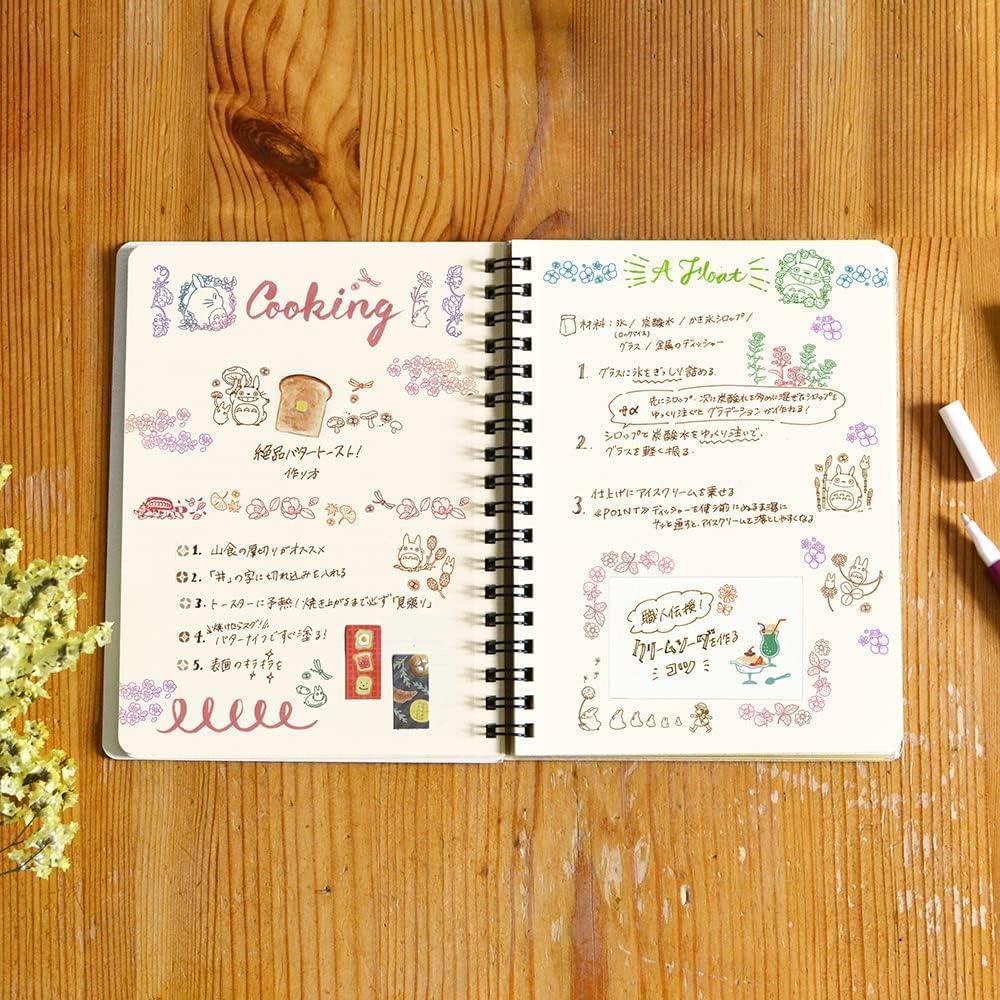 Cooking
絶品バタートースト!
作り方
1. 山食の厚切りがオススメ
2. 「井」の字に切れ込みを入れる
3. トースターに予熱!焼き上がるまで必ず「見張り」
焼けたらスグ!!
4. バターナイフですぐ塗る!
5. 表面のキラキラを
A Float
材料:氷/炭酸水/かき氷シロップ/
(ロックアイス)
グラス/金属のディッシャー
1. グラスに氷をぎっしり詰める.
+α 先にシロップ・次に炭酸水を多めに混ぜたシロップを
ゆっくり注ぐと グラデーションが作れる!
2. シロップと炭酸水をゆっくり注いで、
グラスを軽く振る.
3. 仕上げにアイスクリームを乗せる
≪POINT≫ディッシャーを使う前にぬるま湯に
サッと通すと、アイスクリームを落としやすくなる
職人伝授!
クリームソーダを作る
コツ